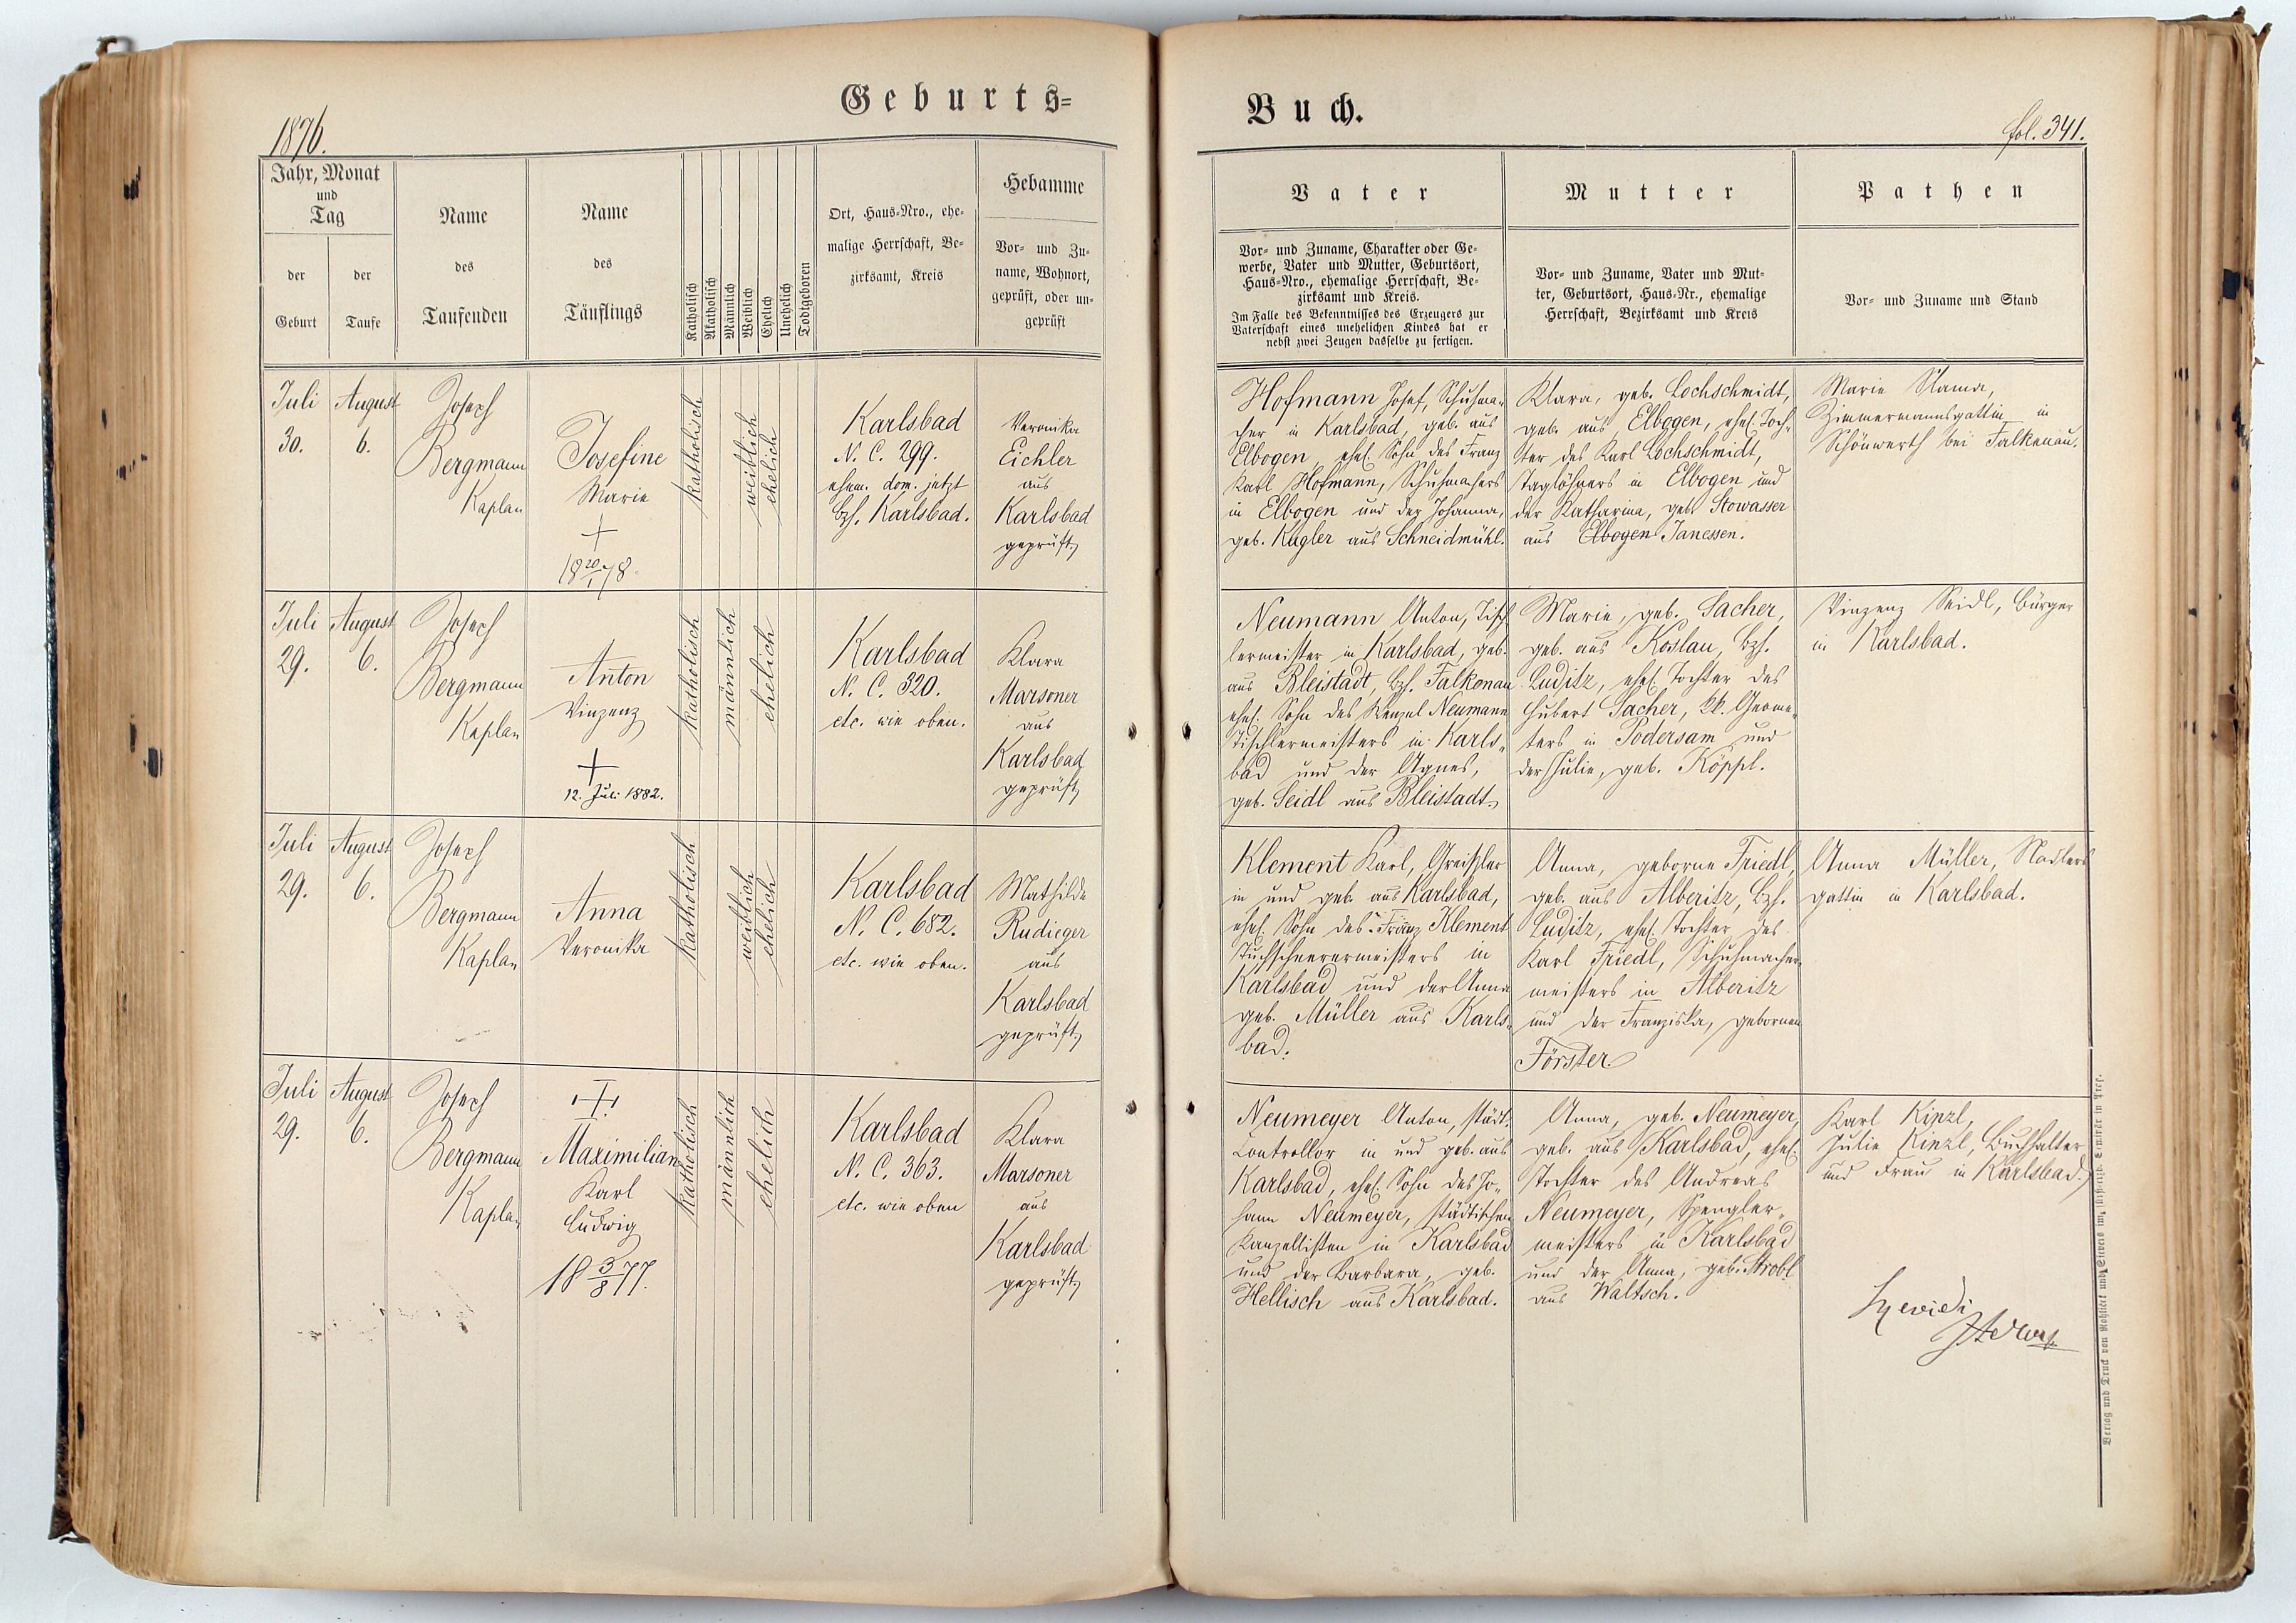 Geburts=
Buch.
1876.
fol. 341.
Jahr, Monat
und
Tag
der
Geburt
der
Taufe
Name
des
Taufenden
Name
des
Täuflings
Katholisch
Akatholisch
Männlich
Weiblich
Ehelich
Unehelich
Todtgeboren
Ort, Haus-Nro., ehe-
malige Herrschaft, Be-
zirksamt, Kreis
Hebamme
Vor- und Zu-
name, Wohnort,
geprüft, oder un-
geprüft
Vater
Vor- und Zuname, Charakter oder Ge-
werbe, Vater und Mutter, Geburtsort,
Haus-Nro., ehemalige Herrschaft, Be-
zirksamt und Kreis.
Im Falle des Bekenntnisses des Erzeugers zur
Vaterschaft eines unehelichen Kindes hat er
nebst zwei Zeugen dasselbe zu fertigen.
Mutter
Vor- und Zuname, Vater und Mut-
ter, Geburtsort, Haus-Nr., ehemalige
Herrschaft, Bezirksamt und Kreis
Pathen
Vor- und Zuname und Stand
Juli
30.
August
6.
Joseph
Bergmann
Kaplan
Josefine
Marie
+
18 20/1 78.
katholisch
weiblich
ehelich
Karlsbad
N. C. 299.
ehem. dom. jetzt
Bzh. Karlsbad.
Veronika
Eichler
aus
Karlsbad
geprüft.
Hofmann Josef, Schuhma-
cher in Karlsbad, geb. aus
Elbogen, ehel. Sohn des Franz
Karl Hofmann, Schuhmachers
in Elbogen und der Johanna,
geb. Kugler aus Schneidmühl.
Klara, geb. Lochschmidt,
geb. aus Elbogen, ehel. Toch-
ter des Karl Lochschmidt,
Taglöhners in Elbogen und
der Katharina, geb. Stowasser
aus Elbogen Janessen.
Marie Slama,
Zimmermannsgattin in
Schönwerth bei Falkenau.
Juli
29.
August
6.
Joseph
Bergmann
Kaplan
Anton
Vinzenz
+
12. Juli 1882.
katholisch
männlich
ehelich
Karlsbad
N. C. 320.
etc. wie oben.
Klara
Marsoner
aus
Karlsbad
geprüft
Neumann Anton, Tisch
lermeister in Karlsbad, geb.
aus Bleistadt, Bzh. Falkenau
ehel. Sohn des Wenzel Neumann
Tischlermeisters in Karls-
bad und der Agnes,
geb. Seidl aus Bleistadt.
Marie, geb. Sacher,
geb. aus Koslau, Bzh.
Luditz, ehel. Tochter des
Hubert Sacher, k.k. Geome-
ters in Podersam und
der Julie, geb. Köppl.
Vinzenz Seidl, Bürger
in Karlsbad.
Juli
29.
August
6.
Joseph
Bergmann
Kaplan
Anna
Veronika
katholisch
weiblich
ehelich
Karlsbad
N. C. 682.
etc. wie oben.
Mathilde
Rudieger
aus
Karlsbad
geprüft.
Klement Karl, Greißler
in und geb. aus Karlsbad,
ehel. Sohn des Franz Klement
Tuchscherermeisters in
Karlsbad und der Anna
geb. Müller aus Karls-
bad.
Anna, geborne Friedl,
geb. aus Alberitz, Bzh.
Luditz, ehel. Tochter des
Karl Friedl, Schuhmacher-
meisters in Alberitz
und der Franziska, gebornen
Förster.
Anna Müller, Nadlers
gattin in Karlsbad.
Juli
29.
August
6.
Joseph
Bergmann
Kaplan
+
Maximilian
Karl
Ludwig
18 3/8 77.
katholisch
männlich
ehelich
Karlsbad
N. C. 363.
etc. wie oben
Klara
Marsoner
aus
Karlsbad
geprüft
Neumeyer Anton, städt.
Controllor in und geb. aus
Karlsbad, ehel. Sohn des Jo-
hann Neumeyer, städtischen
Kanzellisten in Karlsbad
und der Barbara, geb.
Hellisch aus Karlsbad.
Anna, geb. Neumeyer,
geb. aus Karlsbad, ehel.
Tochter des Andreas
Neumeyer, Spengler-
meisters in Karlsbad
und der Anna, geb. Strobl
aus Waltsch.
Karl Kinzl,
Julie Kinzl, Buchhalter
und Frau in Karlsbad.
Verlag und Druck von